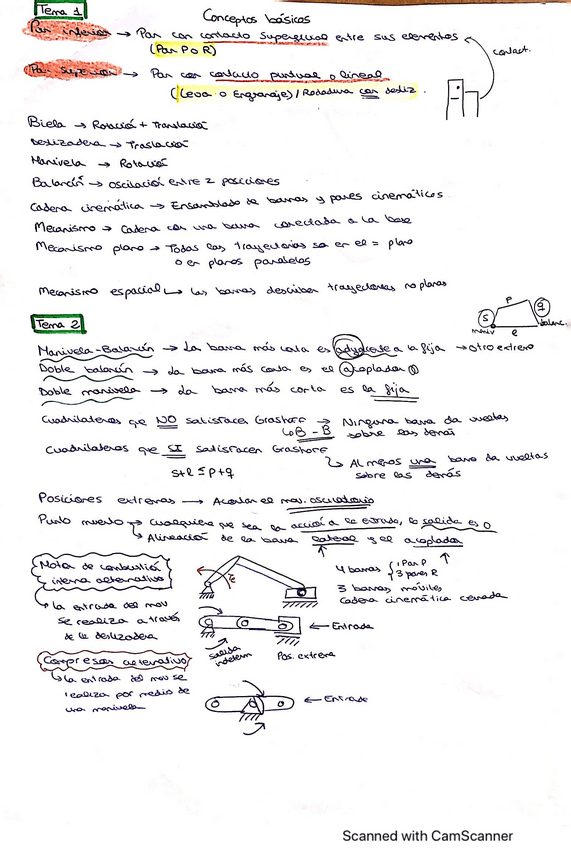 Tema 1
Conceptos básicos
Par inferior → Par con contacto superficial entre sus elementos
(Par P o R)
contact.
Par superior → Par con contacto puntual o lineal
(Leva o Engranaje) / Rodadura con desliz.
Biela → Rotación + Translación
Deslizadera → Traslación
Manivela → Rotación
Balancín → oscilación entre 2 posiciones
Cadena cinemática → Ensamblado de barras y pares cinemáticos
Mecanismo → Cadena con una barra conectada a la base
Mecanismo plano → Todas las trayectorias son en el = plano
o en planos paralelos
Mecanismo espacial → las barras describen trayectorias no planas
Tema 2
s p q l
maniv balanc.
Manivela-Balancín → La barra más corta es adyacente a la fija → otro extremo
Doble balancín → La barra más corta es el acoplador
Doble manivela → La barra más corta es la fija
Cuadriláteros que NO satisfacen Grashof → Ninguna barra da vueltas
B - B sobre las demás
Cuadriláteros que SI satisfacen Grashof
Al menos una barra da vueltas
s+l ≤ p+q
sobre las demás
Posiciones extremas → Acotan el mov. oscilatorio
Punto muerto → Cualquiera que sea la acción a la entrada, la salida es 0
→ Alineación de la barra lateral y el acoplador
Motor de combustión
interna alternativo
4 barras 1 Par P
3 pares R
3 barras móviles
Cadena cinemática cerrada
la entrada del mov
se realiza a través
de la deslizadera
← Entrada
salida
indeterm
Pos. extrema
Compresor alternativo
la entrada del mov se
realiza por medio de
una manivela
← Entrada
Scanned with CamScanner